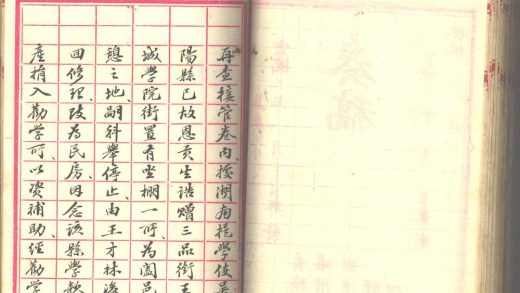 再查接管卷內、據湖南提學使吳
陽縣已故恩貢生誥贈三品銜王
城學院街置有坐棚一所、為闔邑
憩之地、嗣科舉停止、由王才林
回修理、改為民房、因念該縣學款
產捐入勸學所、以資補助、經勸學